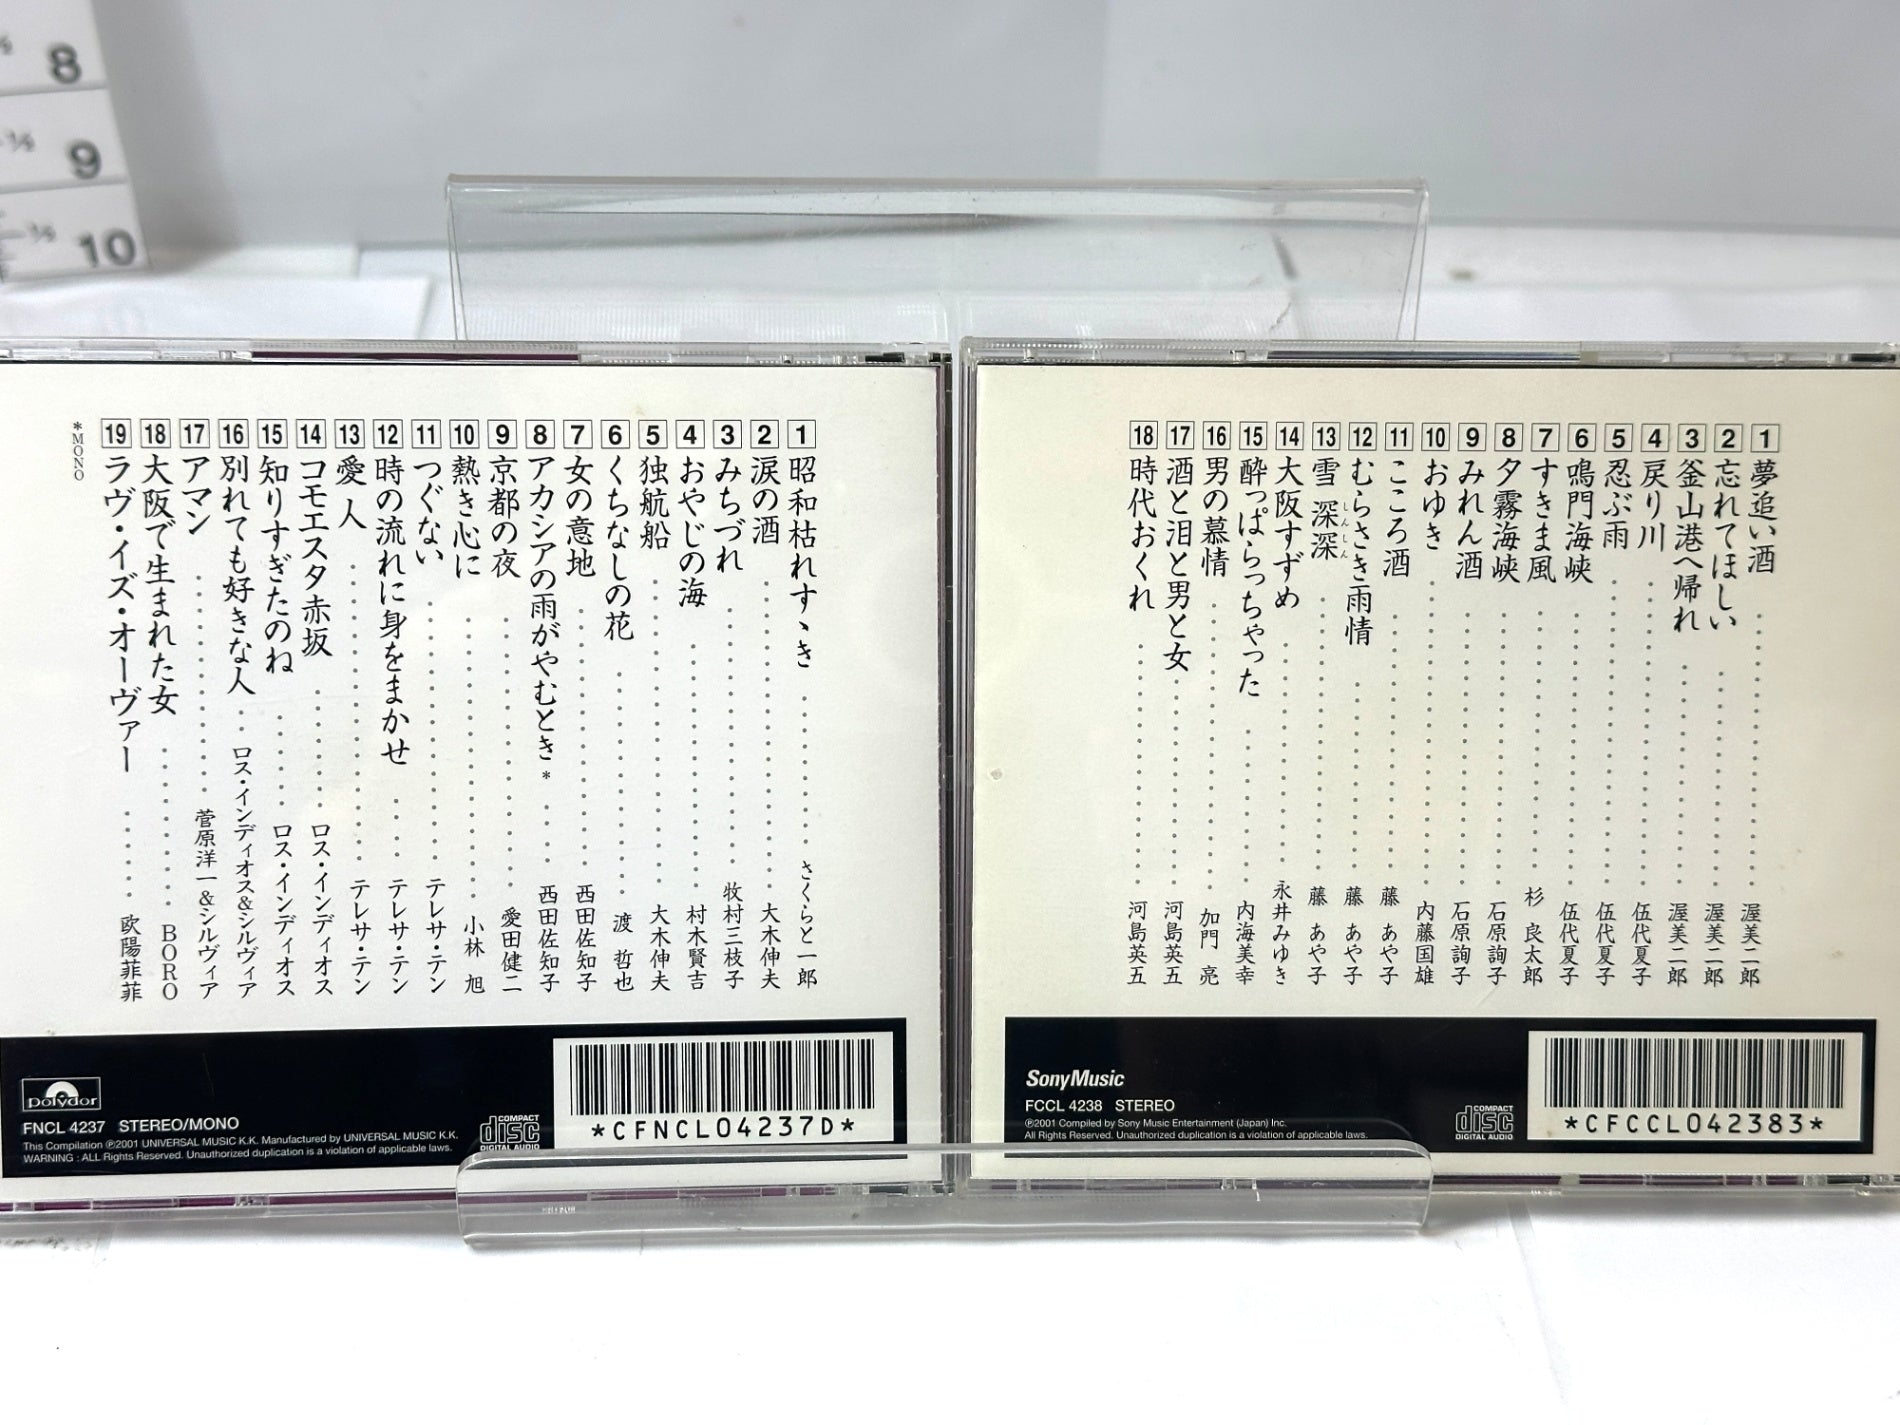 8
9
10
1 昭和枯れすゝき さくらと一郎
2 涙の酒 大木伸夫
3 みちづれ 牧村三枝子
4 おやじの海 村木賢吉
5 独航船 大木伸夫
6 くちなしの花 渡 哲也
7 女の意地 西田佐知子
8 アカシアの雨がやむとき* 西田佐知子
9 京都の夜 愛田健二
10 熱き心に 小林 旭
11 つぐない テレサ・テン
12 時の流れに身をまかせ テレサ・テン
13 愛人 テレサ・テン
14 コモエスタ赤坂 ロス・インディオス
15 知りすぎたのね ロス・インディオス
16 別れても好きな人 ロス・インディオス&シルヴィア
17 アマン 菅原洋一&シルヴィア
18 大阪で生まれた女 BORO
19 ラヴ・イズ・オーヴァー 欧陽菲菲
*MONO
polydor
FNCL 4237 STEREO/MONO
This Compilation ℗2001 UNIVERSAL MUSIC K.K. Manufactured by UNIVERSAL MUSIC K.K.
WARNING : ALL Rights Reserved. Unauthorized duplication is a violation of applicable laws.
COMPACT
disc
DIGITAL AUDIO
*CFNCL04237D*
1 夢追い酒 渥美二郎
2 忘れてほしい 渥美二郎
3 釜山港へ帰れ 渥美二郎
4 戻り川 伍代夏子
5 忍ぶ雨 伍代夏子
6 鳴門海峡 伍代夏子
7 すきま風 杉 良太郎
8 夕霧海峡 石原詢子
9 みれん酒 石原詢子
10 おゆき 内藤国雄
11 こころ酒 藤 あや子
12 むらさき雨情 藤 あや子
13 雪 深深 しんしん 藤 あや子
14 大阪すずめ 永井みゆき
15 酔っぱらっちゃった 内海美幸
16 男の慕情 加門 亮
17 酒と泪と男と女 河島英五
18 時代おくれ 河島英五
SonyMusic
FCCL 4238 STEREO
℗2001 Compiled by Sony Music Entertainment (Japan) Inc.
All Rights Reserved. Unauthorized duplication is a violation of applicable laws.
COMPACT
disc
DIGITAL AUDIO
*CFCCL042383*